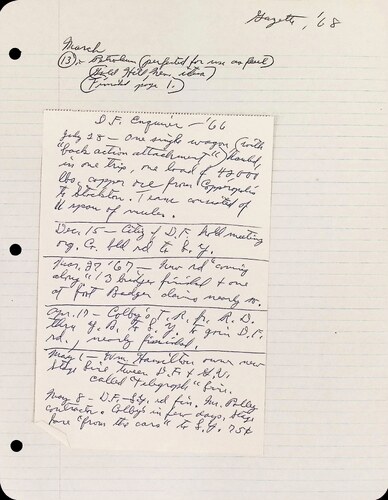 Gazette, '68
March
(13). Petroleum (perfected for use as fuel)
(Gold Hill News item)
(Finish page 1.)
D.F. Enquirer - '66
July 28 - One single wagon (with
"back action attachment") hauled,
in one trip, one load of 42,000
lbs. copper ore from Copperopolis
to Stockton. Team consisted of
11 span of mules.
Dec. 15 - City of D.F. hold meeting
org. Co. bld rd to S.Y.
Mar. 27 '67 - New rd "coming
along" / 3 bridges finished & one
at Fort Badger claims nearly so.
Apr. 17 - Colby's T. R. fr. R. D.
thru Y. A. to S. Y. to join D.F.
rd., nearly finished.
May 1 - Wm. Hamilton owner new
stage line tween D.F. & H.N.
called "Telegraph" line.
May 8 - D.F.-S.Y. rd fin. Mr. Polley
contractor. Colby's in few days. Stage
fare "from the cars" to S.Y. 75¢